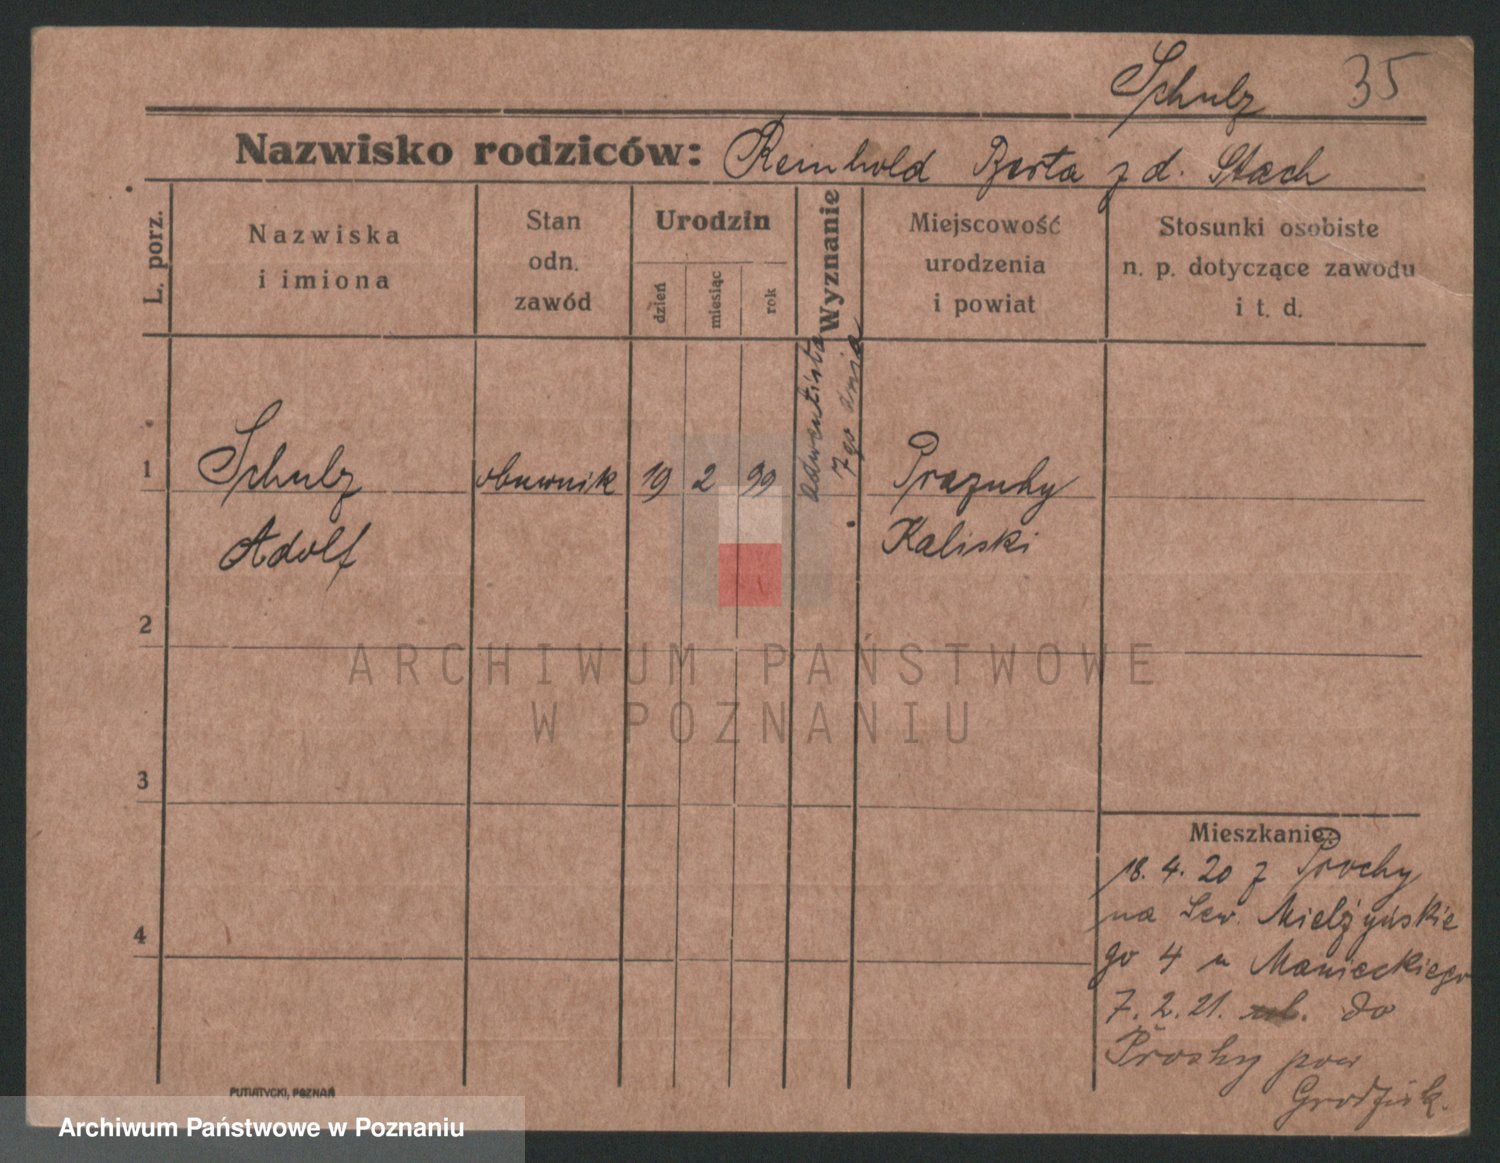 Schulz 35
Nazwisko rodziców: Reinhold Berta z d. Stach
L. porz.
Nazwiska
i imiona
Stan
odn.
zawód
Urodzin
dzień
miesiąc
rok
Wyznanie
Miejscowość
urodzenia
i powiat
Stosunki osobiste
n. p. dotyczące zawodu
i t. d.
1 Schulz obuwnik 19 2 99 adwentista Prazuhy
7go dnia
Adolf Kaliski
2
3
4
ARCHIWUM PAŃSTWOWE
W POZNANIU
Mieszkanie:
18. 4. 20 z Prochy
na Sew. Mielżyńskie
go 4 u Manieckiego
7. 2. 21. do
Prochy pow
Grodzisk.
PUTIATYCKI, POZNAŃ
Archiwum Państwowe w Poznaniu